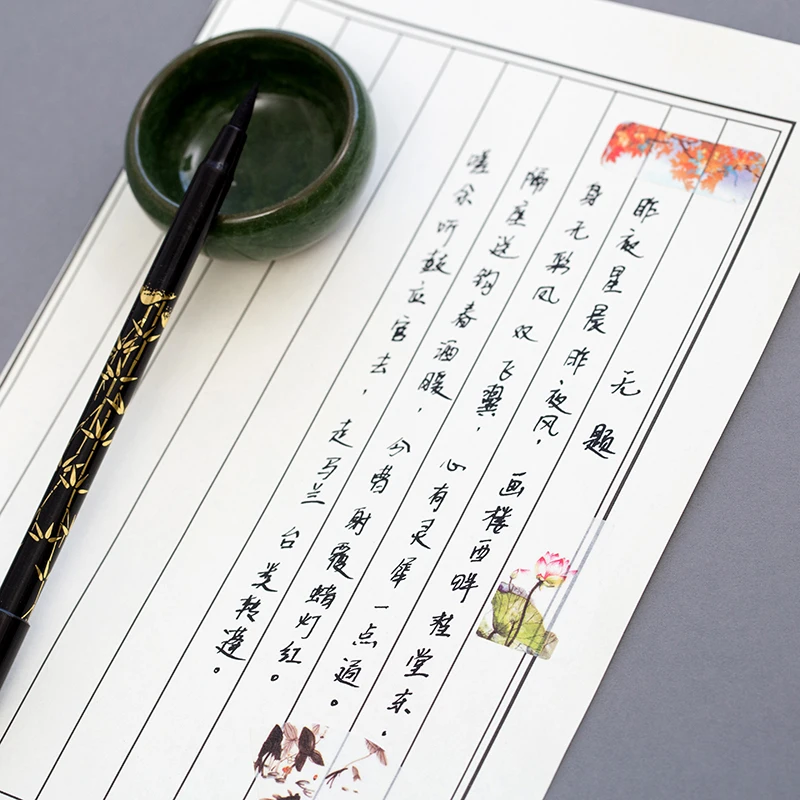 无题
昨夜星晨昨夜风，画楼西畔桂堂东。
身无彩凤双飞翼，心有灵犀一点通。
隔座送钩春酒暖，分曹射覆蜡灯红。
嗟余听鼓应官去，走马兰台类转蓬。